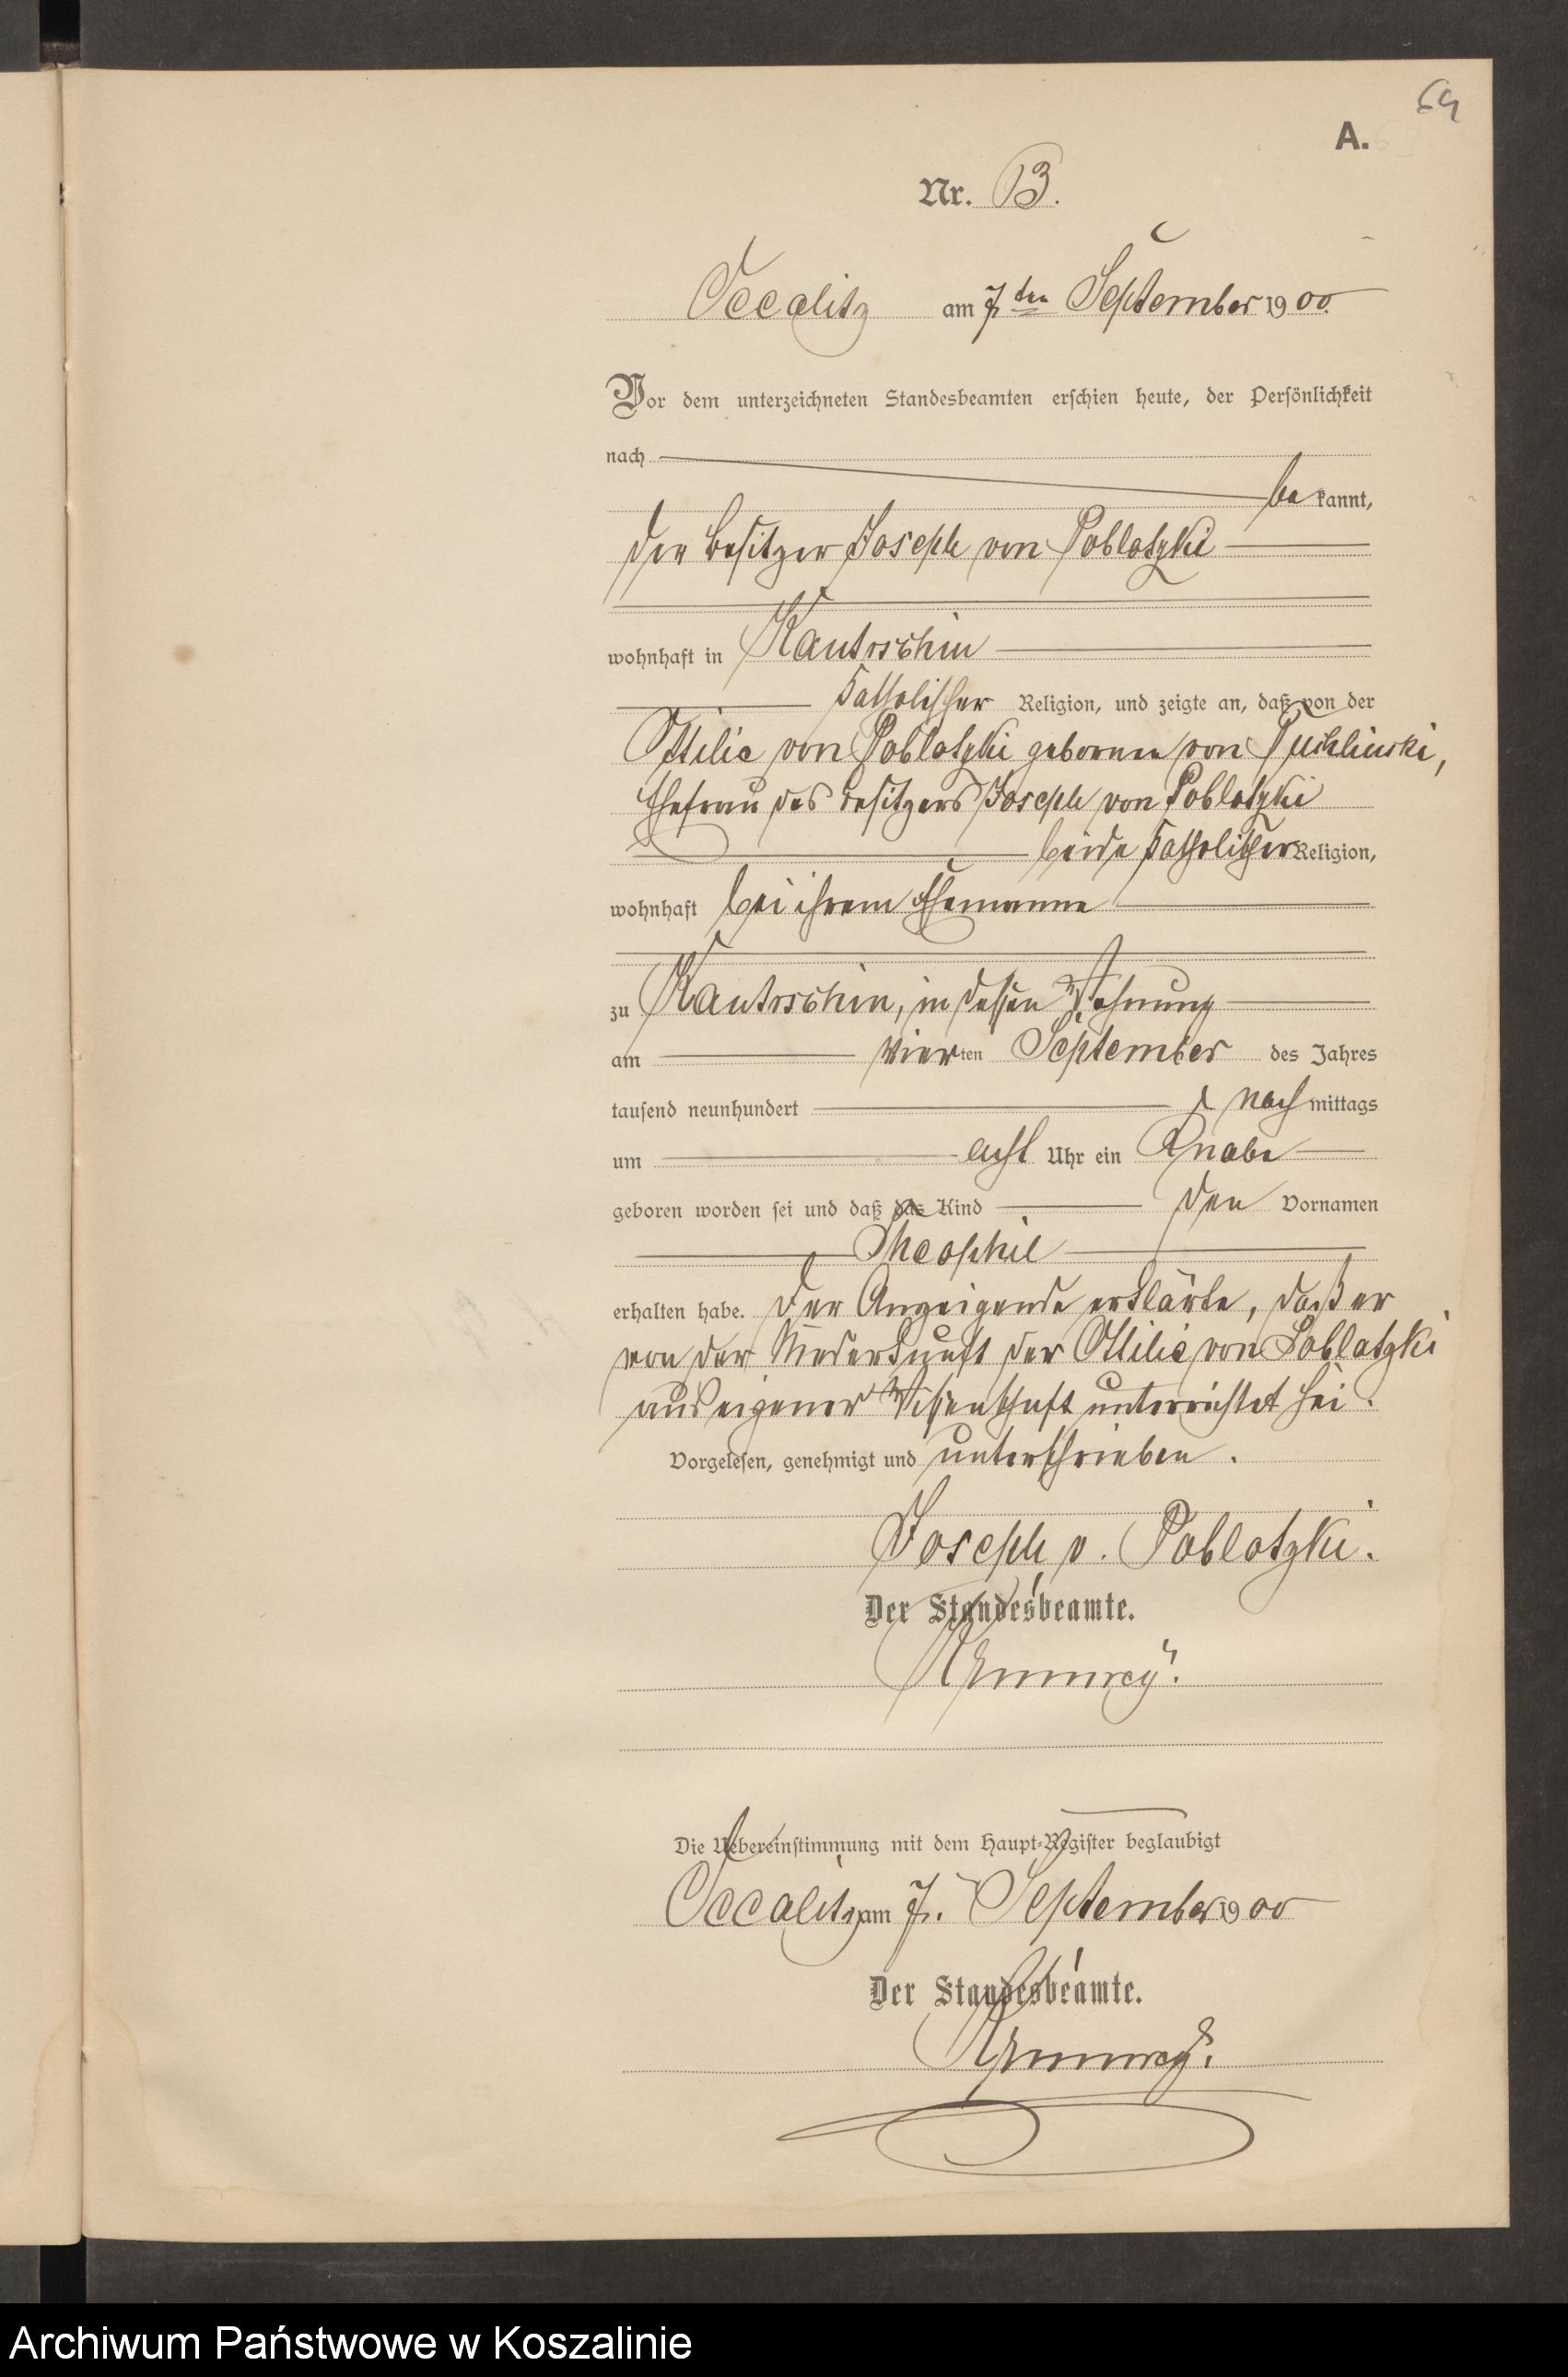 64
A.
Nr. 13.
Occalitz am 7ten September 1900.
Vor dem unterzeichneten Standesbeamten erschien heute, der Persönlichkeit
nach
bekannt,
der Besitzer Joseph von Poblotzki
wohnhaft in Kautrschin
katholischer Religion, und zeigte an, daß von der
Ottilie von Poblotzki geborenen von
Ehefrau des Besitzers Joseph von Poblotzki
beide katholischer Religion,
wohnhaft bei ihrem Ehemanne
zu Kautrschin, in dessen Wohnung
am vierten September des Jahres
tausend neunhundert nachmittags
um acht Uhr ein Knabe
geboren worden sei und daß das Kind den Vornamen
Theophil
erhalten habe. Der Anzeigende erklärte, daß er
von der Niederkunft der Ottilie von Poblotzki
aus eigener Wissenschaft unterrichtet sei.
Vorgelesen, genehmigt und unterschrieben.
Joseph v. Poblotzki.
Der Standesbeamte.
Die Uebereinstimmung mit dem Haupt-Register beglaubigt
Occalitz am 7. September 1900
Der Standesbeamte.
Archiwum Państwowe w Koszalinie